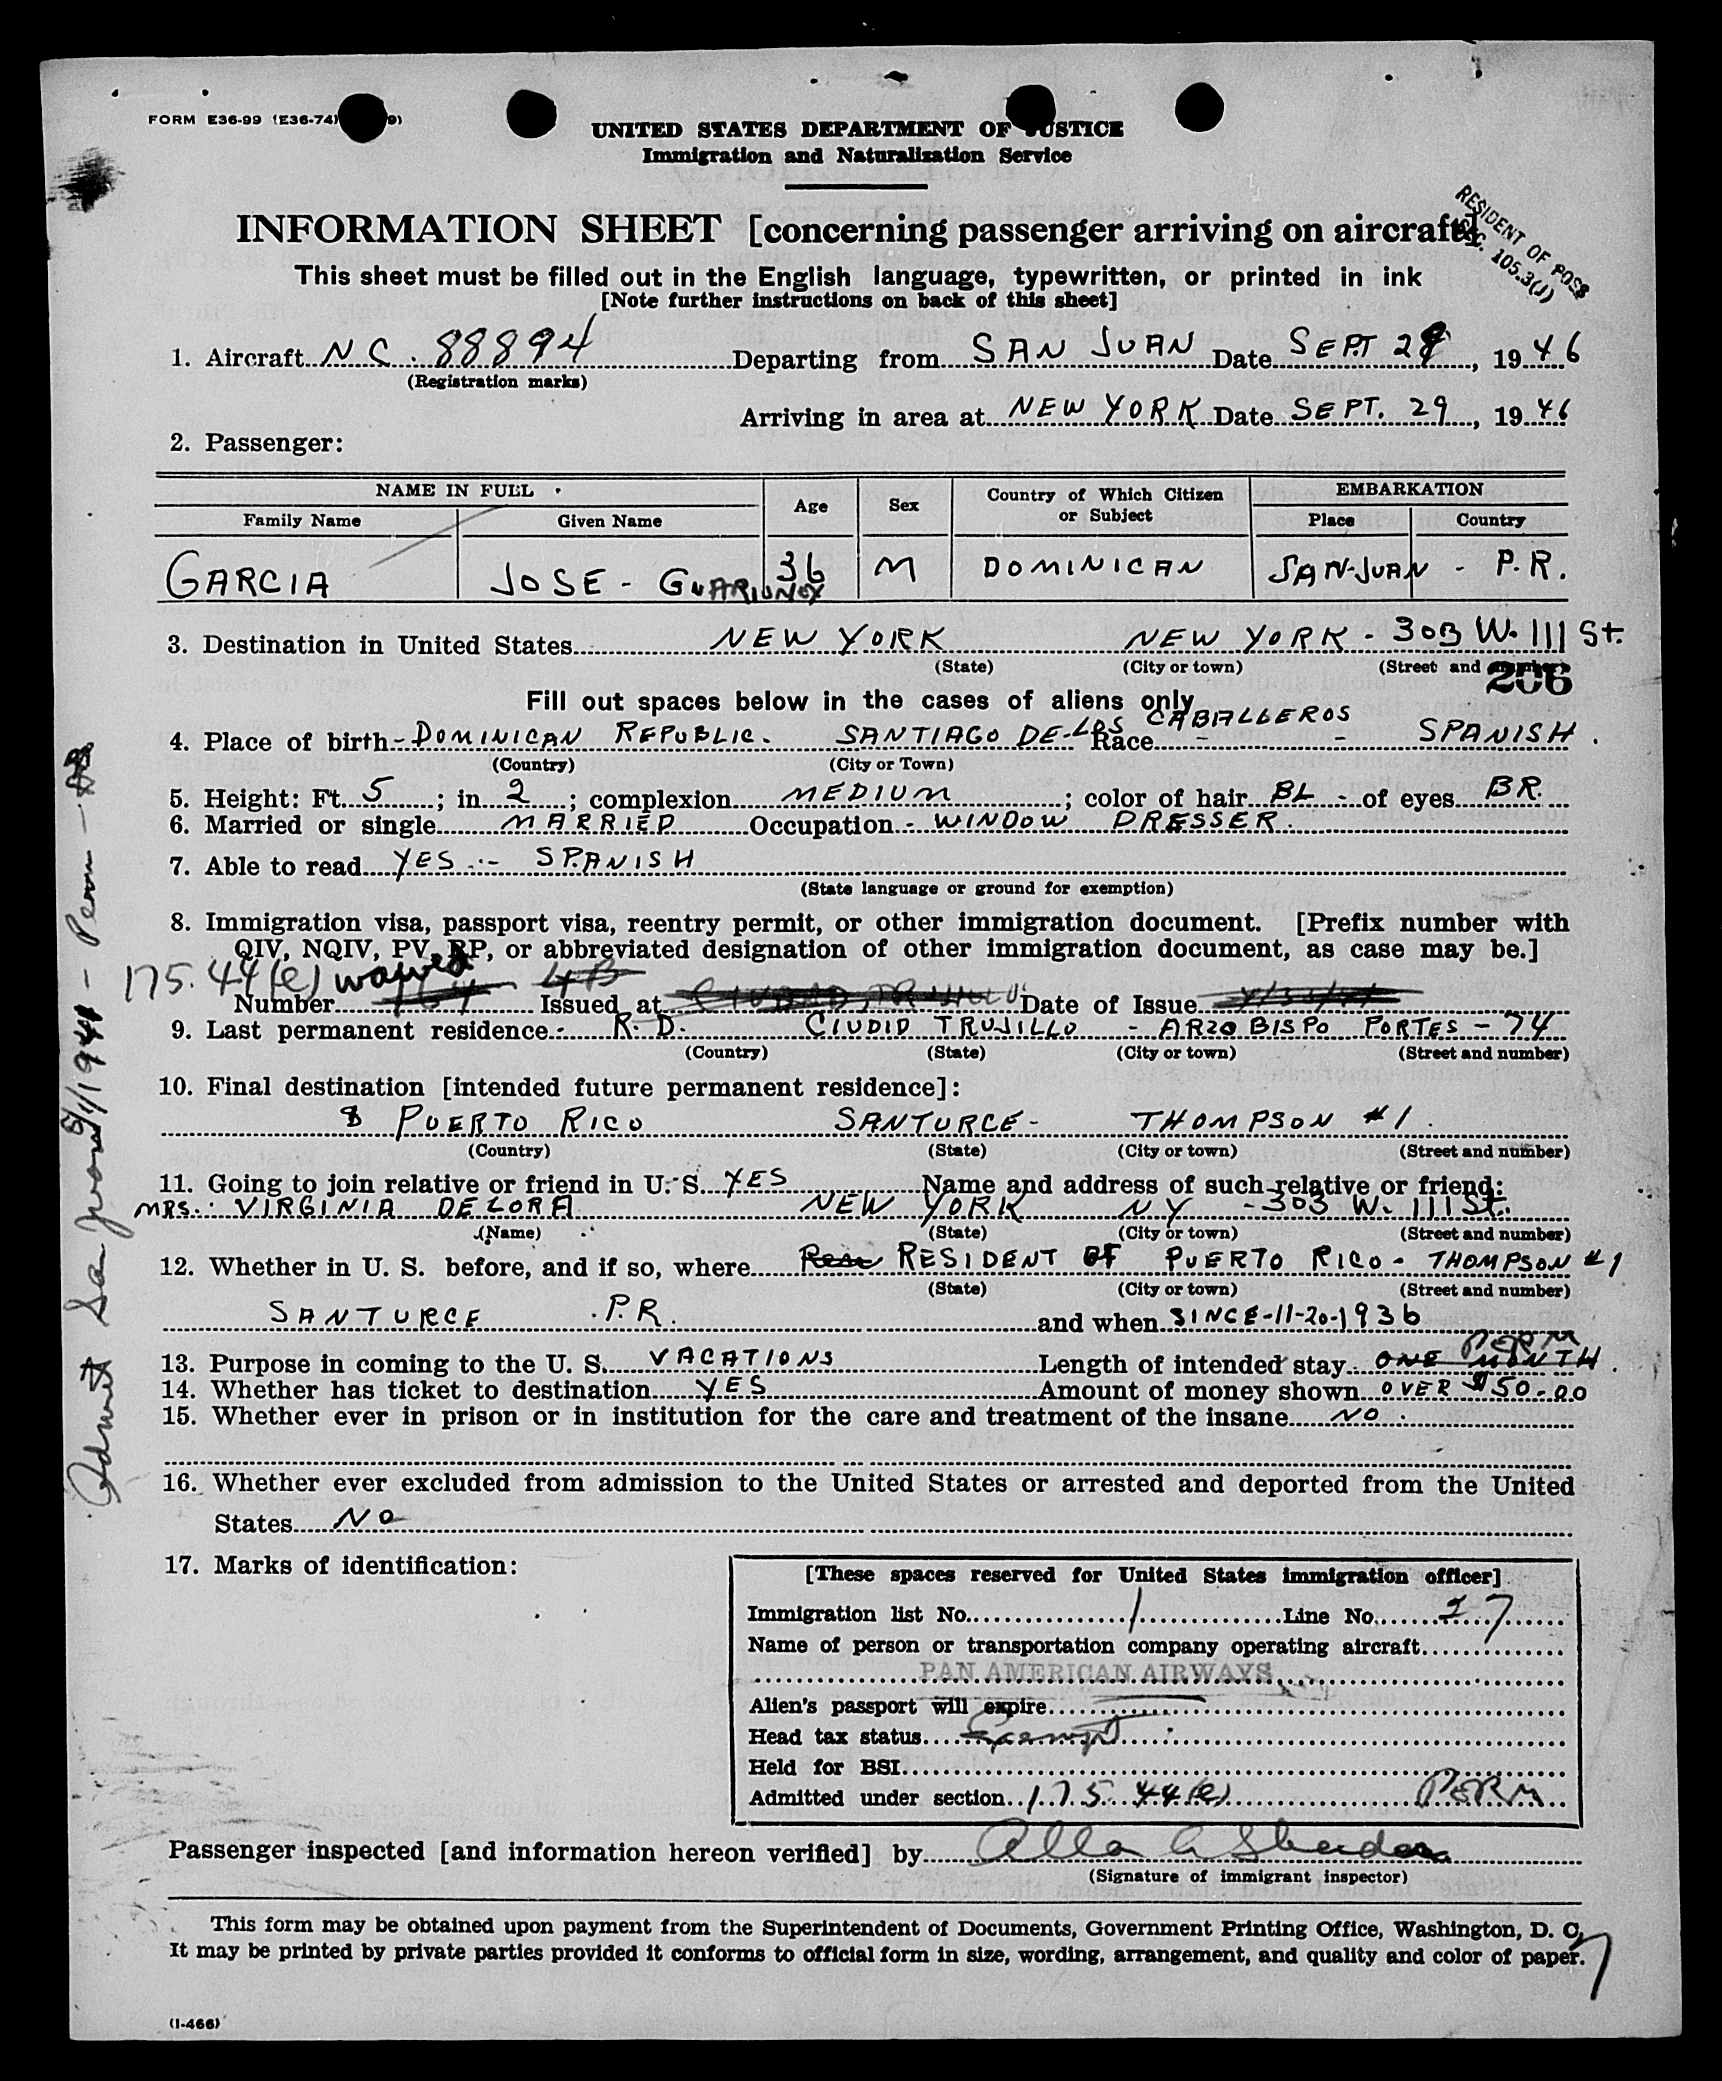 FORM E36-99 (E36-74) 9)
UNITED STATES DEPARTMENT OF JUSTICE
Immigration and Naturalization Service
RESIDENT OF POSS
SEC. 105.3(J)
INFORMATION SHEET [concerning passenger arriving on aircraft]
This sheet must be filled out in the English language, typewritten, or printed in ink
[Note further instructions on back of this sheet]
1. Aircraft NC. 88894 Departing from SAN JUAN Date SEPT 29, 1946
(Registration marks)
Arriving in area at NEW YORK Date SEPT. 29, 1946
2. Passenger:
NAME IN FULL Age Sex Country of Which Citizen or Subject EMBARKATION
Family Name Given Name Place Country
GARCIA JOSE - GUARIONEX 36 M DOMINICAN SAN-JUAN - P.R.
3. Destination in United States NEW YORK NEW YORK - 303 W. 111 St.
(State) (City or town) (Street and number)
206
Fill out spaces below in the cases of aliens only
4. Place of birth - DOMINICAN REPUBLIC. SANTIAGO DE-LOS CABALLEROS Race SPANISH.
(Country) (City or Town)
5. Height: Ft. 5; in. 2; complexion MEDIUM; color of hair BL - of eyes BR.
6. Married or single MARRIED Occupation - WINDOW DRESSER.
7. Able to read YES - SPANISH
(State language or ground for exemption)
8. Immigration visa, passport visa, reentry permit, or other immigration document. [Prefix number with
QIV, NQIV, PV, RP, or abbreviated designation of other immigration document, as case may be.]
175.44(e) waived 4B
Number Issued at Date of Issue
9. Last permanent residence - R. D. CIUDID TRUJILLO - ARZOBISPO PORTES - 74
(Country) (State) (City or town) (Street and number)
10. Final destination [intended future permanent residence]:
PUERTO RICO SANTURCE - THOMPSON #1.
(Country) (State) (City or town) (Street and number)
11. Going to join relative or friend in U. S. YES Name and address of such relative or friend:
MRS. VIRGINIA DE LORA NEW YORK NY - 303 W. 111 St.
(Name) (State) (City or town) (Street and number)
12. Whether in U. S. before, and if so, where RESIDENT OF PUERTO RICO - THOMPSON #1
(State) (City or town) (Street and number)
SANTURCE P.R. and when SINCE-11-20-1936
PERM
13. Purpose in coming to the U. S. VACATIONS Length of intended stay ONE MONTH.
14. Whether has ticket to destination YES Amount of money shown OVER $50.00
15. Whether ever in prison or in institution for the care and treatment of the insane NO.
16. Whether ever excluded from admission to the United States or arrested and deported from the United
States NO
17. Marks of identification:
[These spaces reserved for United States immigration officer]
Immigration list No. 1 Line No. 27
Name of person or transportation company operating aircraft
PAN AMERICAN AIRWAYS
Alien's passport will expire
Head tax status Exempt
Held for BSI
Admitted under section 175.44(e) PERM
Passenger inspected [and information hereon verified] by
(Signature of immigrant inspector)
This form may be obtained upon payment from the Superintendent of Documents, Government Printing Office, Washington, D. C.
It may be printed by private parties provided it conforms to official form in size, wording, arrangement, and quality and color of paper.
7
(I-466)
Admit San Juan 1944 - Perm